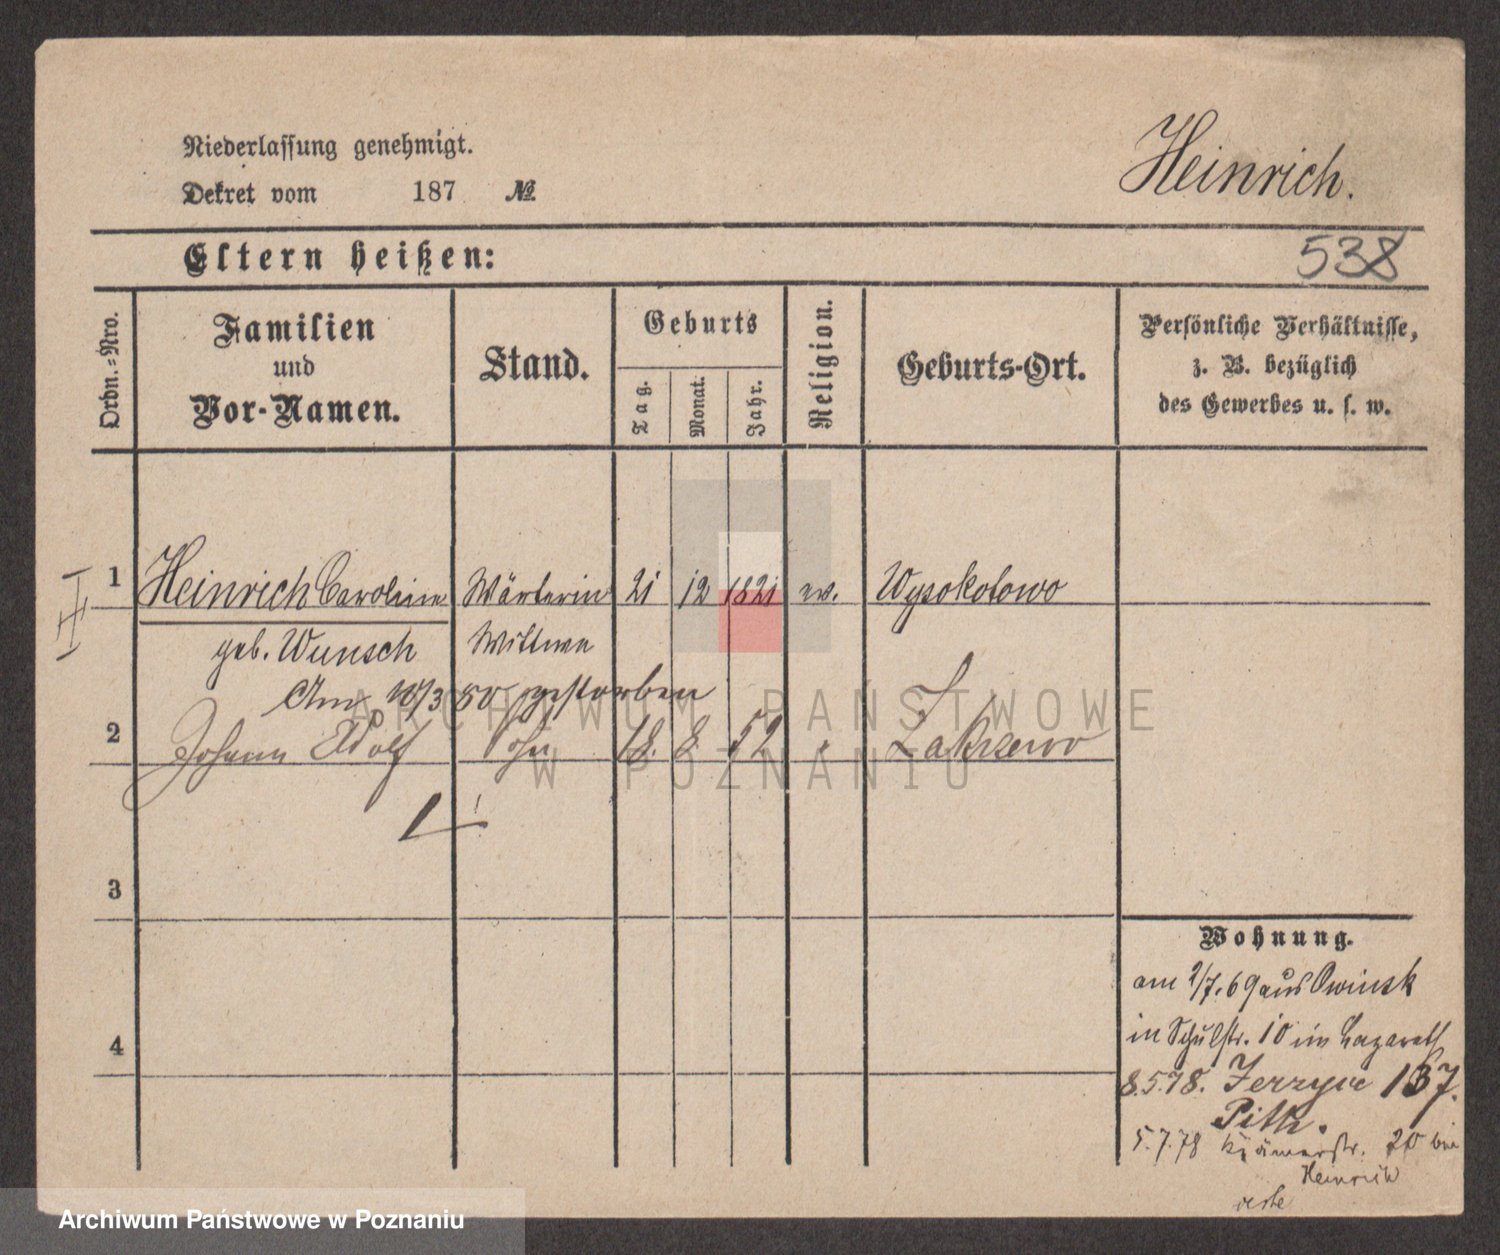 Niederlassung genehmigt.
Dekret vom 187 №
Heinrich.
Eltern heißen:
538
Ordn.=Nro.
Familien
und
Vor-Namen.
Stand.
Geburts
Tag.
Monat.
Jahr.
Religion.
Geburts-Ort.
Persönliche Verhältnisse,
z. B. bezüglich
des Gewerbes u. s. w.
1 Heinrich Caroline Wärterin 21 12 1821 ev. Wysokotowo
geb. Wunsch Wittwe
Am 10/3 80 gestorben
2 Johann Adolf Sohn 18. 8. 52 Zakrzewo
3
4
Wohnung.
am 2/7.69 aus Owinsk
in Schulstr. 10 im Lazareth
8.5.78. Jerzyce 137.
5.7.78 Krämerstr. 20 bei
Heinrich
ARCHIWUM PAŃSTWOWE
W POZNANIU
Archiwum Państwowe w Poznaniu